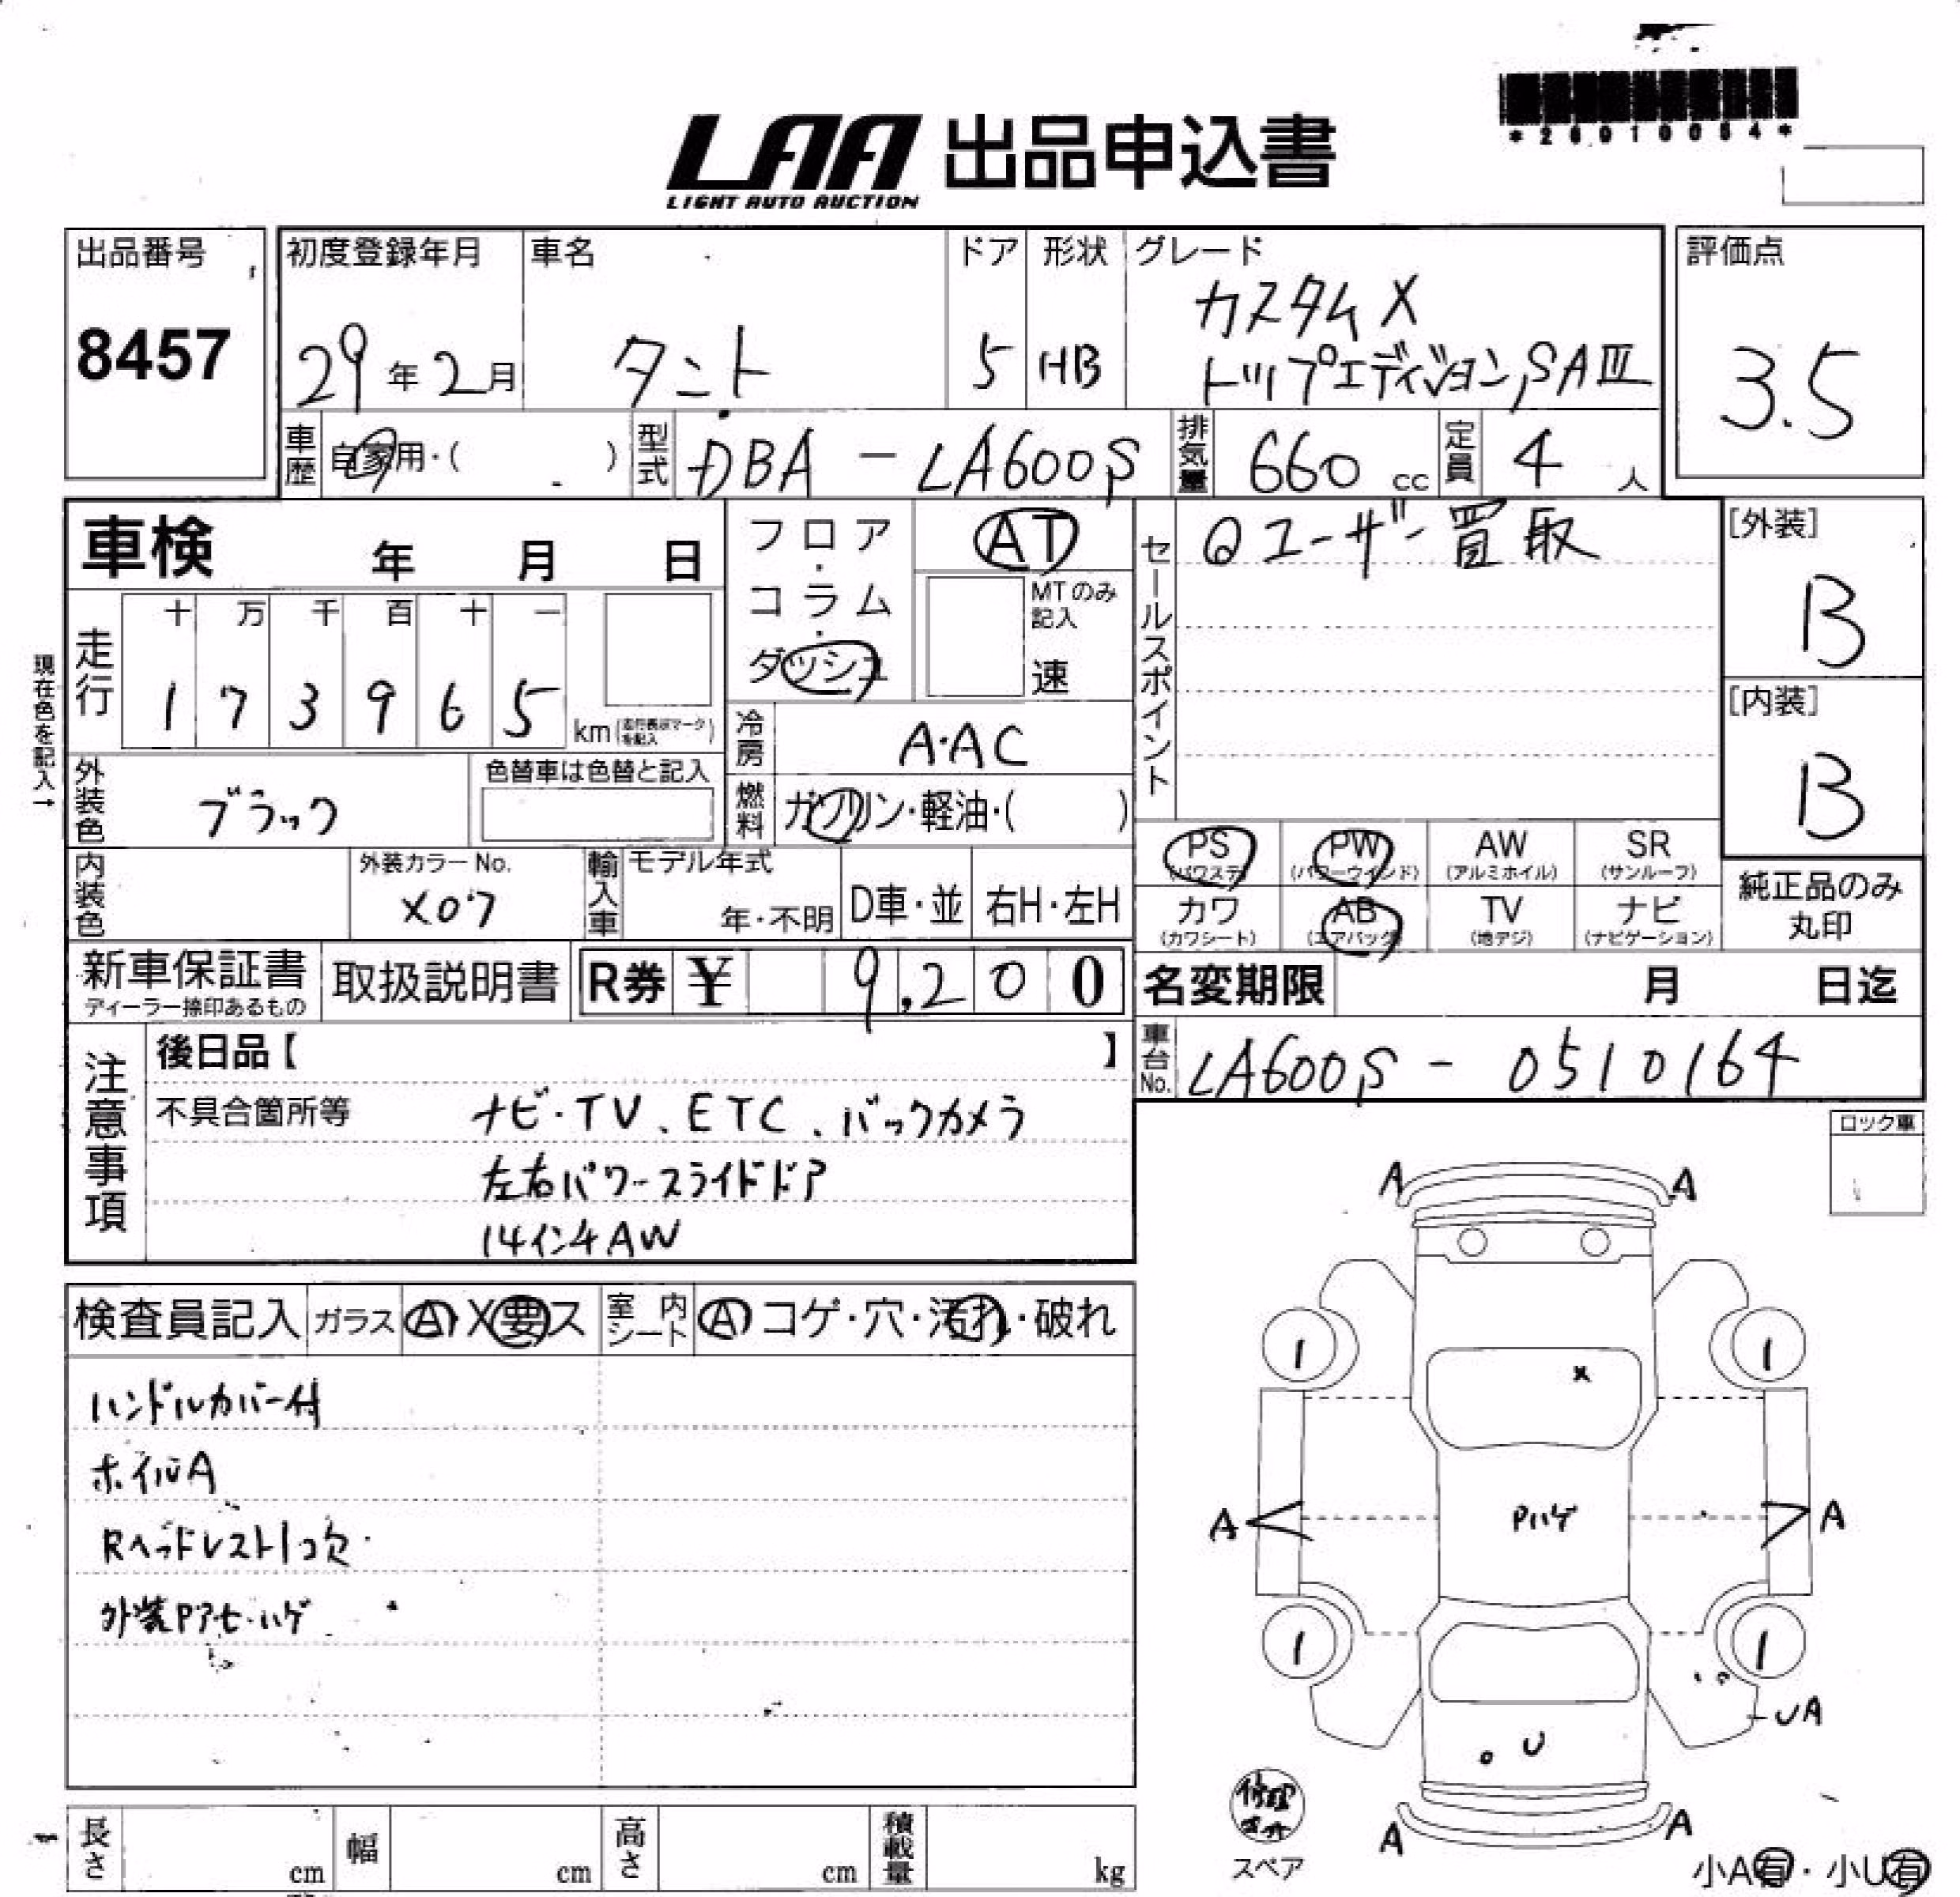 *26010054*
LAA 出品申込書
LIGHT AUTO AUCTION
出品番号
8457
初度登録年月
29年2月
車名
タント
ドア
5
形状
HB
グレード
カスタムX
トップエディションSAⅢ
評価点
3.5
車歴
自家用・( )
型式
DBA-LA600S
排気量
660 cc
定員
4 人
車検 年 月 日
フロア・コラム・ダッシュ
AT
MTのみ記入
速
セールスポイント
Qユーザー買取
[外装]
B
[内装]
B
現在色を記入→
走行
十 万 千 百 十 一
1 7 3 9 6 5 km (走行表示マークを記入)
冷房
A・AC
外装色
ブラック
色替車は色替と記入
燃料
ガソリン・軽油・( )
内装色
外装カラーNo.
X07
輸入車
モデル年式
年・不明
D車・並
右H・左H
PS (パワステ)
PW (パワーウインド)
AW (アルミホイル)
SR (サンルーフ)
カワ (カワシート)
AB (エアバッグ)
TV (地デジ)
ナビ (ナビゲーション)
純正品のみ
丸印
新車保証書
ディーラー捺印あるもの
取扱説明書
R券 ¥ 9,200
名変期限 月 日迄
車台No.
LA600S-0510164
注意事項
後日品【 】
不具合箇所等
ナビ・TV、ETC、バックカメラ
左右パワースライドドア
14インチAW
ロック車
検査員記入
ガラス
A X 要 ス
室内シート
A コゲ・穴・汚れ・破れ
ハンドルカバー付
ホイルA
Rヘッドレスト1コ欠
外装Pアセ・ハゲ
A A
1 1
X
A Pハゲ A
1 1
UA
U
A A
スペア
小A有・小U有
長さ cm
幅 cm
高さ cm
積載量 kg